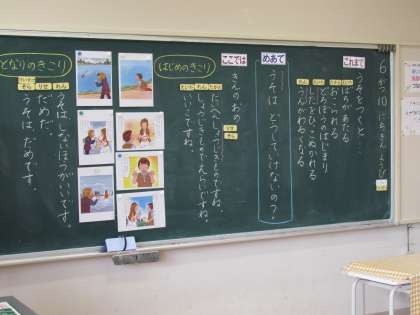 6がつ10にちきんようび
これまで
うそをつくと…
ばちがあたる
おこられる
どろぼうのはじまり
したをひっこぬかれる
うんがわるくなる
めあて
うそは どうしていけないの?
ここでは
きんのおの
はじめのきこり
たいへんしょうじきものですね。
しょうじきものでえらいですね。
いいこですね。
となりのきこり
うそはしないほうがいいです。
だめだ。
うそは、だめです。